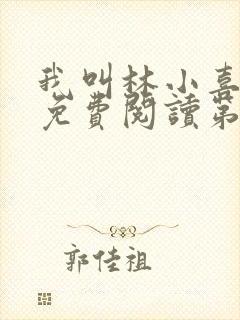 我叫林小喜
免費閱讀第
郭佳祖